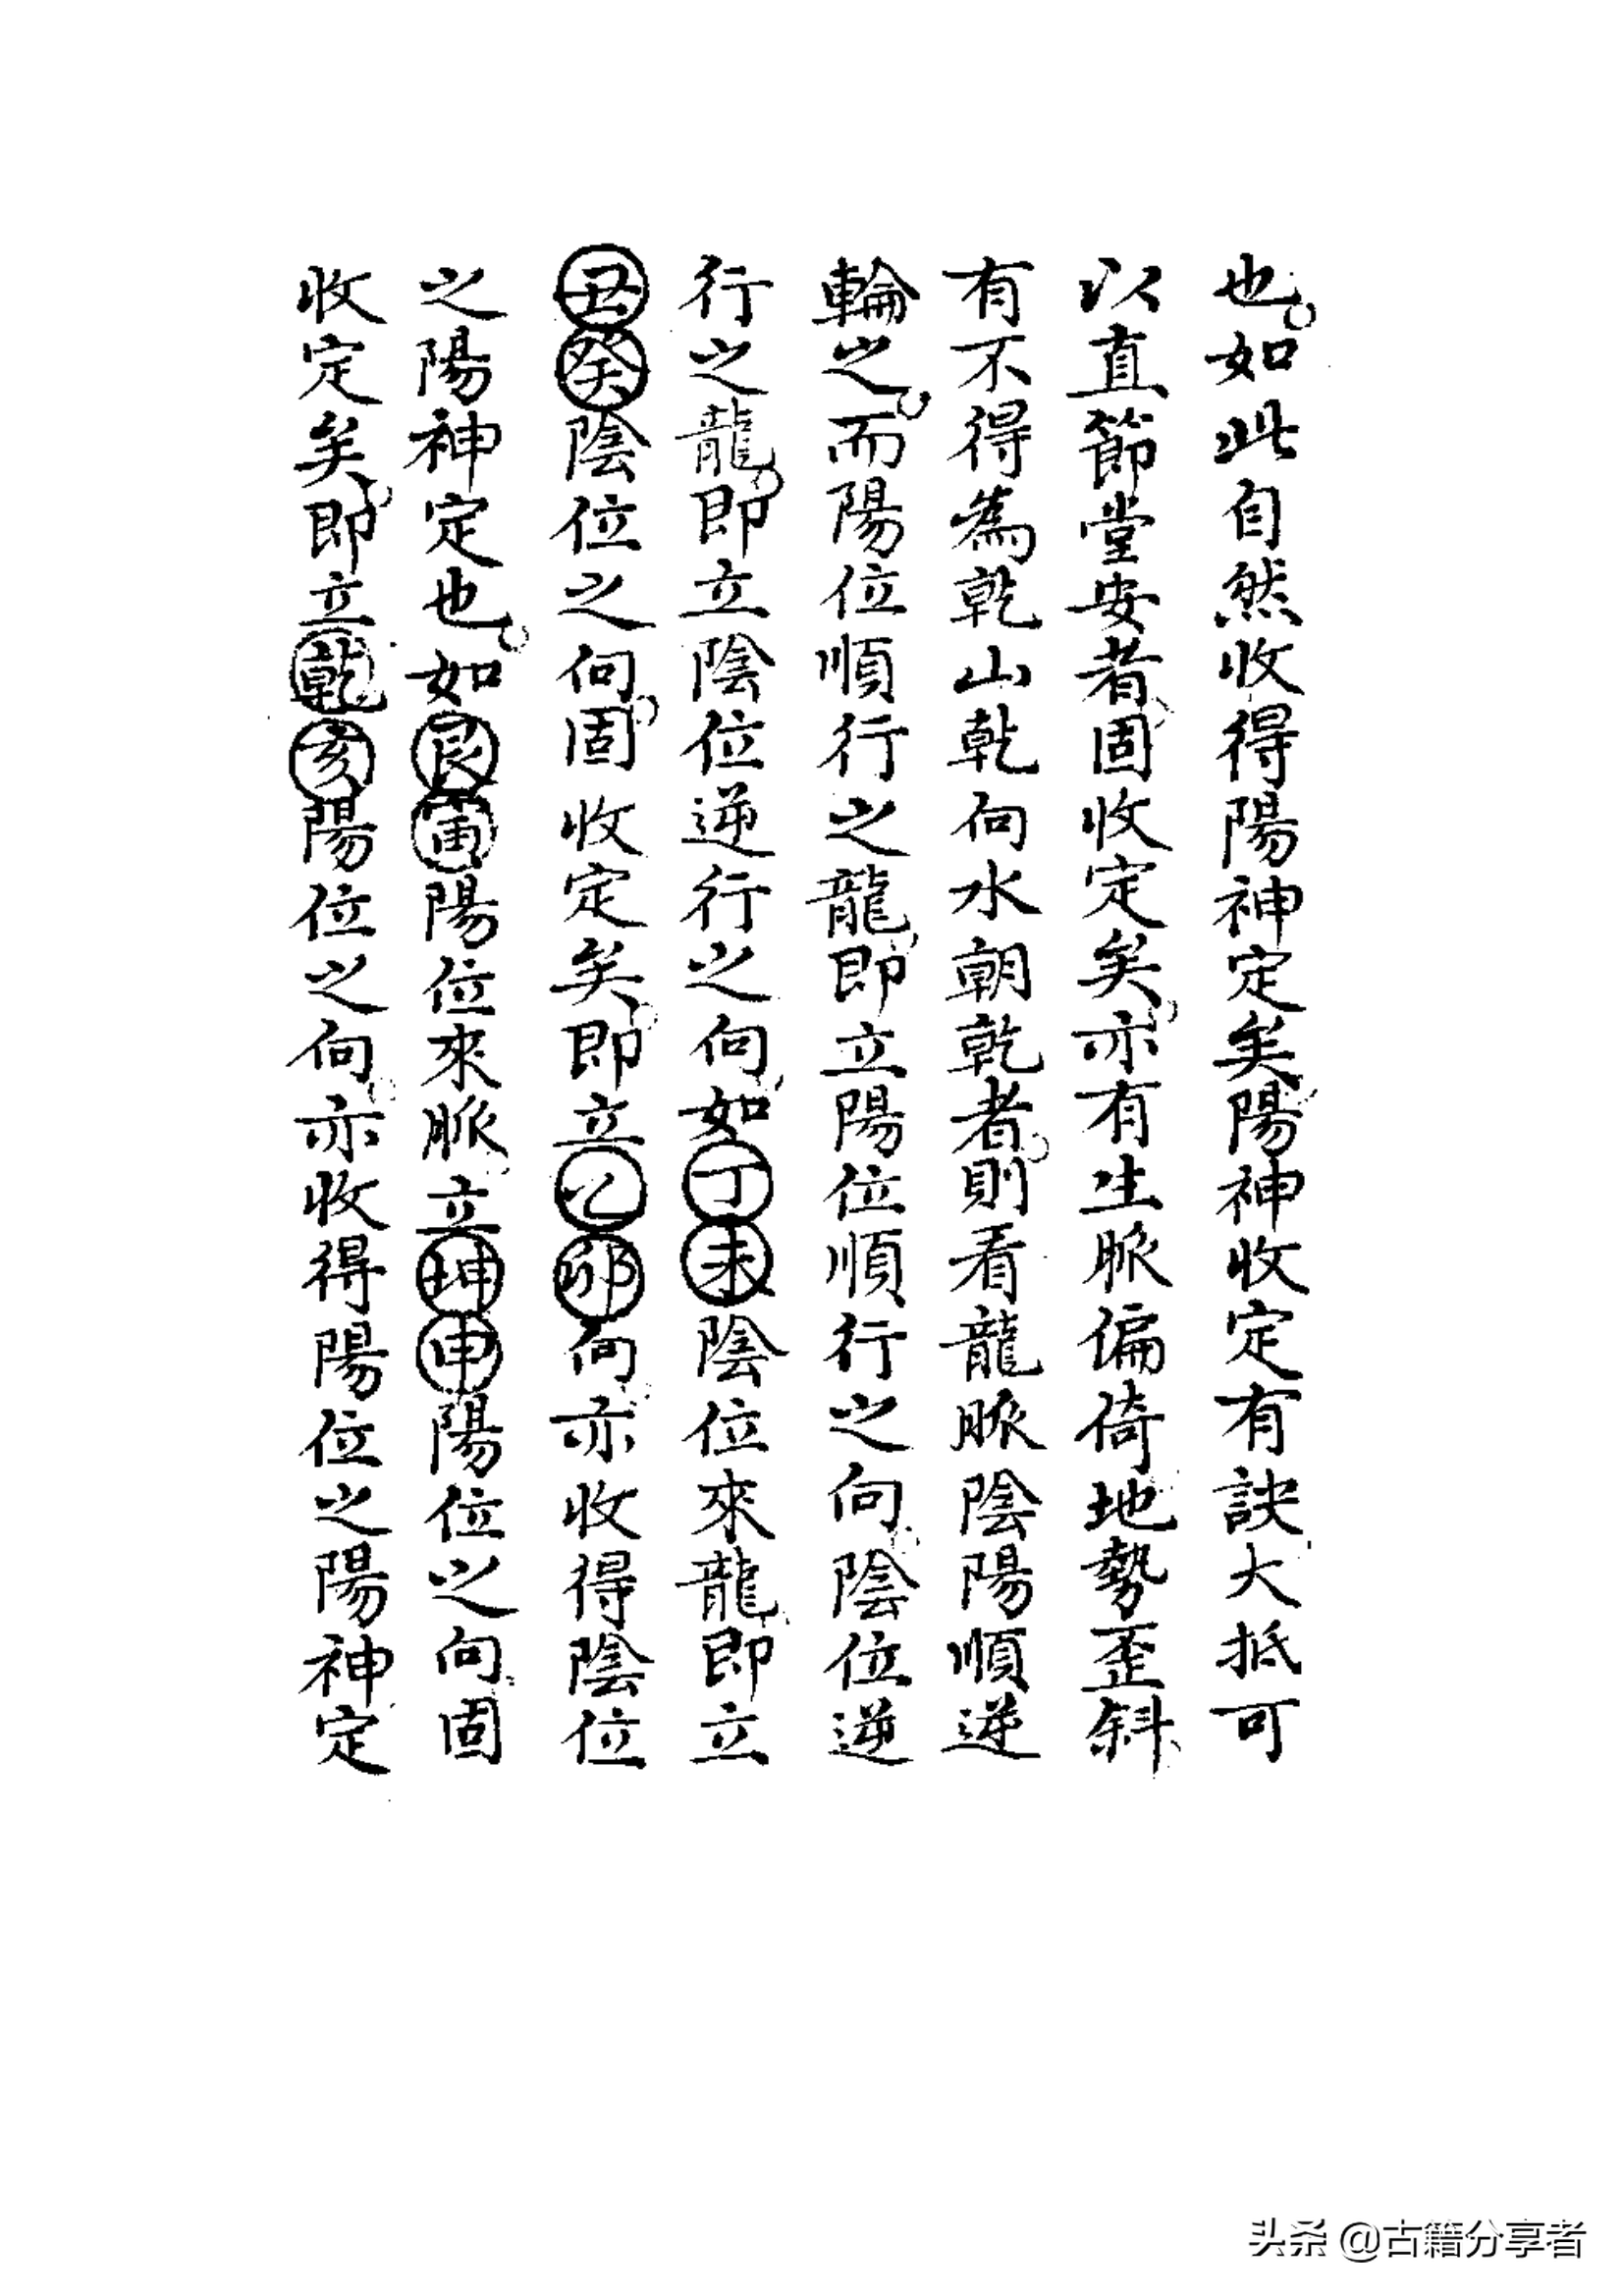 也。如此自然收得陽神定矣陽神收定有訣大抵可
以直節堂安者固收定矣。亦有生脈偏倚地勢歪斜
有不得為乾山乾向水朝乾者。則看龍脈陰陽順逆
輪之。而陽位順行之龍即立陽位順行之向。陰位逆
行之龍。即立陰位逆行之向如丁未陰位來龍即立
丑癸陰位之向。固收定矣。即立乙卯向亦收得陰位
之陽神定也。如艮寅陽位來脈立坤申陽位之向固
收定矣。即立乾亥陽位之向。亦收得陽位之陽神定
头条 @古籍分享者